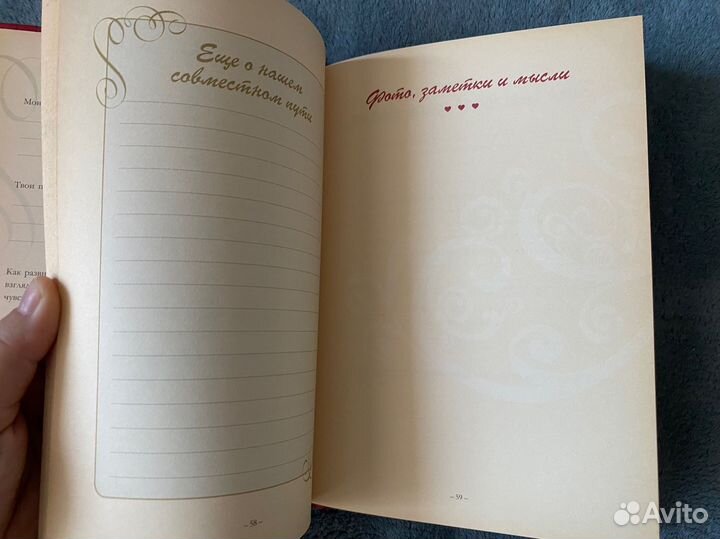 Мои
Твои п
Как разви
взгляд
чувс
Еще о нашем
совместном пути
– 58 –
Фото, заметки и мысли
– 59 –
Avito